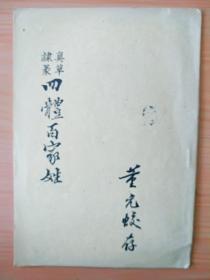 真草
隸篆
四體百家姓
董元蛟存